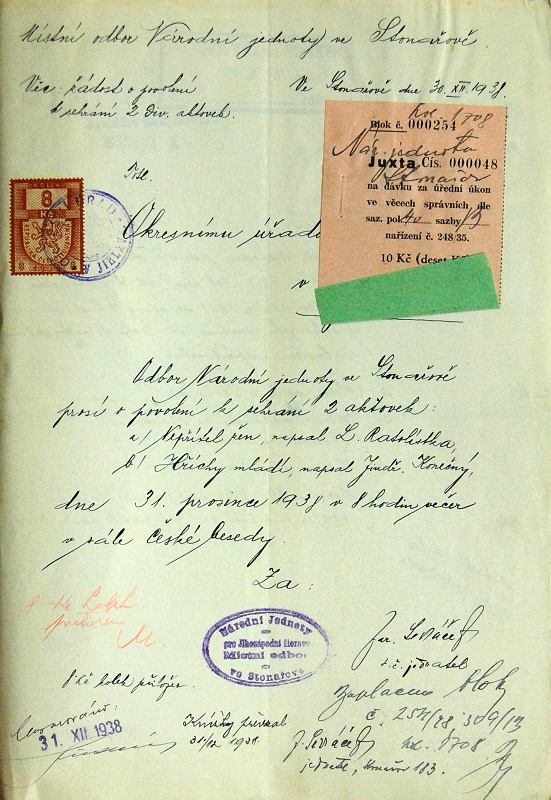 Místní odbor Národní jednoty ve Stonařově.
Věc: žádost o povolení
k sehrání 2 div. aktovek.
Ve Stonařově dne 30. XII. 1938.
Blok č. 000254
Nár. jednota
Juxta Čís. 000048
Stonařov
na dávku za úřední úkon
ve věcech správních, dle
saz. pol. 40 sazby /B
nařízení č. 248/35.
10 Kč (deset K
KOLEK
8
Kč
Okresnímu úřad
v
Odbor Národní jednoty ve Stonařově
prosí o povolení k sehrání 2 aktovek:
a/ Nepřítel žen, napsal L. Ratolístka,
b/ Hříchy mládí, napsal Jindř. Konečný,
dne 31. prosince 1938 v 8 hodin večer
v sále České besedy.
Za:
8 Kč kolek
Národní Jednoty
pro Jihozápadní Moravu
Místní odbor
ve Stonařově
t. č. jednatel
8 Kč kolek přiložen.
Zaplaceno blok
31. XII. 1938
Knížky převzal
31/12 1938.
jednatel, Stonařov 183.